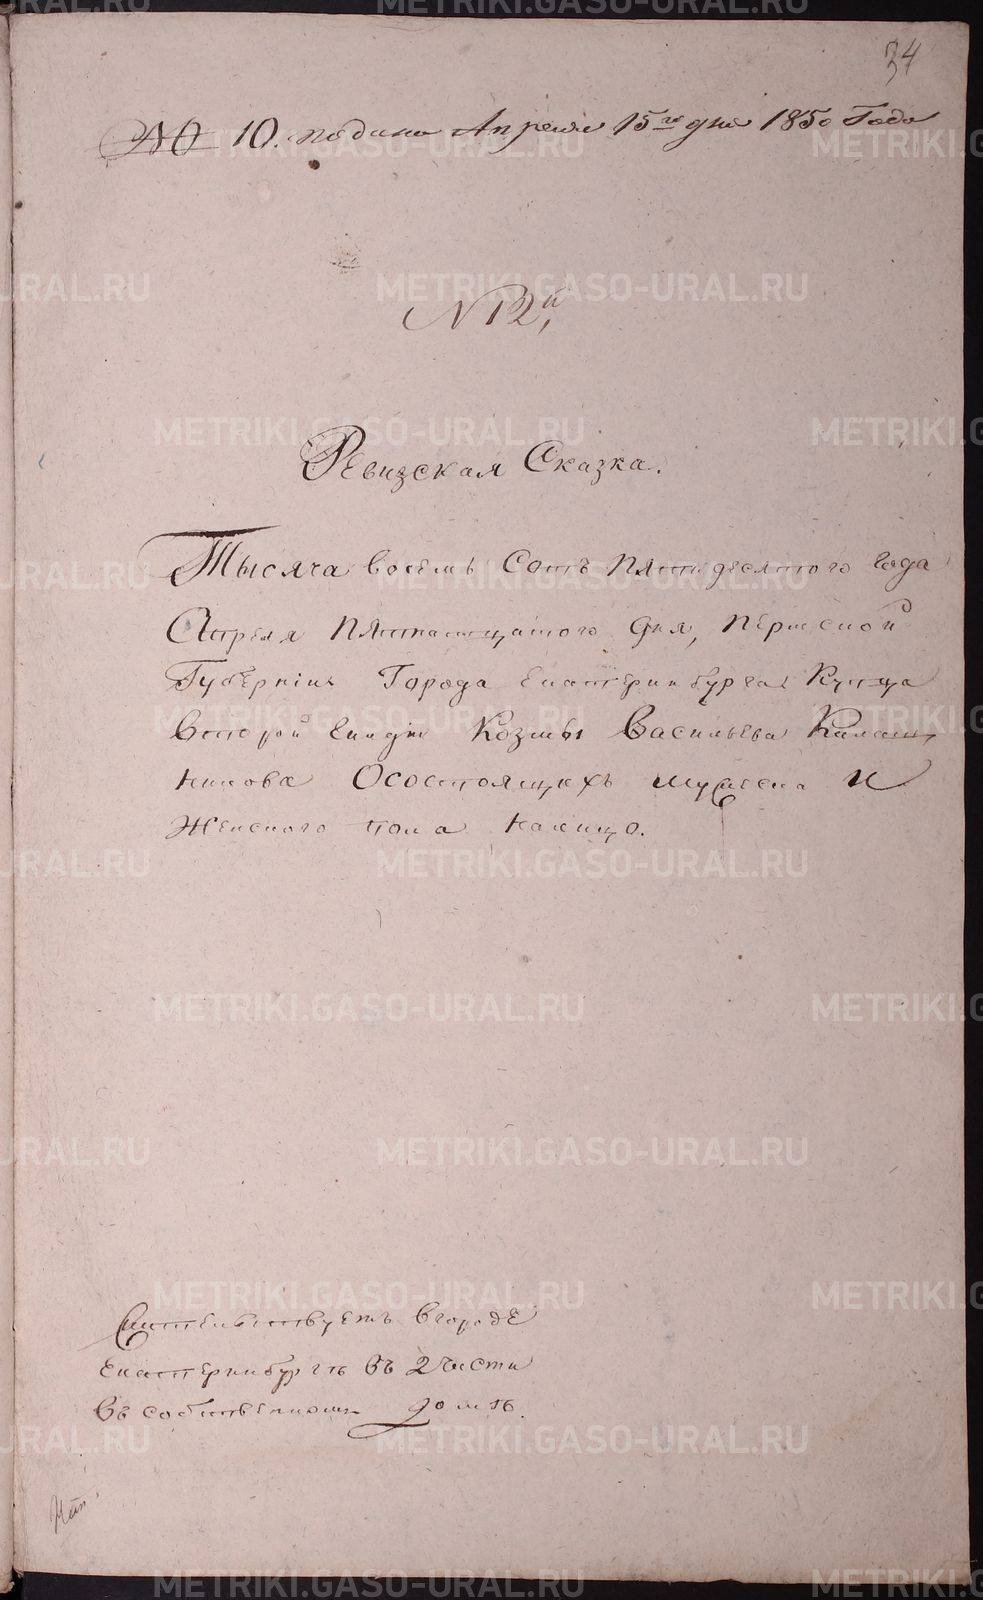 34
№ 10. подана Апреля 15го дня 1850 Года
N 12й
Ревизская Сказка.
Тысяча восемь Сотъ пятидесятого года
Апреля пятнатцатого дня, пермской
Губернiи Города Екатеринбурга Купца
второй гильдiи Козмы Васильева Калаш
никова Осостоящихъ мужеска И
Женского пола налицо.
Жительствуетъ вгороде
Екатеринбурге въ 2 части
въ собственномъ доме.
METRIKI.GASO-URAL.RU